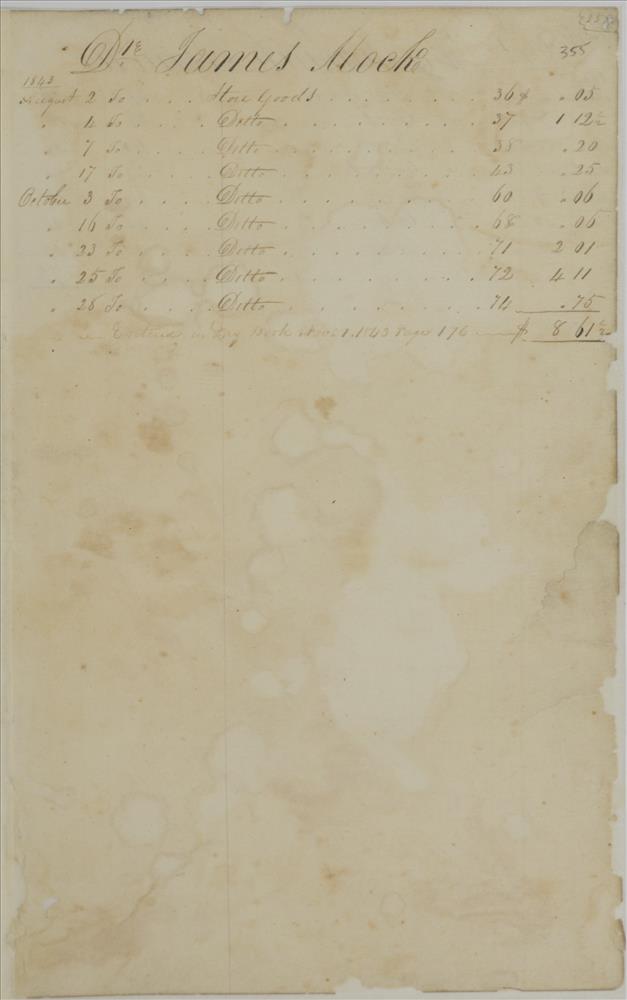 355
Dr. James Mock
1843
August 2 To . . . . Store Goods . . . . . . . 36 $ . 05
" 4 To . . . . Ditto . . . . . . . . 37 1 12½
" 7 To . . . . Ditto . . . . . . . . 38 . 20
" 17 To . . . . Ditto . . . . . . . . 43 . 25
October 3 To . . . . Ditto . . . . . . . . 60 . 06
" 16 To . . . . Ditto . . . . . . . . 68 . 06
" 23 To . . . . Ditto . . . . . . . . 71 2 01
" 25 To . . . . Ditto . . . . . . . . 72 4 11
" 28 To . . . . Ditto . . . . . . . . 74 . 75
in Day Book Novr 1. 1843 Page 176 $ 8 61½